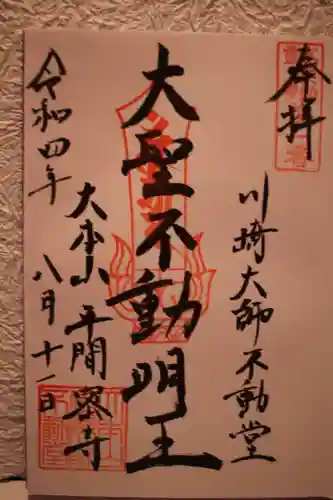 奉拝
川崎大師不動堂
大聖不動明王
大本山平間寺
令和四年八月十一日